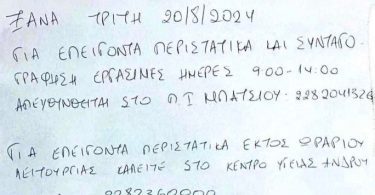 ΞΑΝΑ ΤΡΙΤΗ 20/8/2024
ΓΙΑ ΕΠΕΙΓΟΝΤΑ ΠΕΡΙΣΤΑΤΙΚΑ ΚΑΙ ΣΥΝΤΑΓΟ-
ΓΡΑΦΗΣΗ ΕΡΓΑΣΙΜΕΣ ΗΜΕΡΕΣ 9:00-14:00
ΑΠΕΥΘΥΝΘΕΙΤΑΙ ΣΤΟ Π.Ι ΜΠΑΤΣΙΟΥ. 2282041326
ΓΙΑ ΕΠΕΙΓΟΝΤΑ ΠΕΡΙΣΤΑΤΙΚΑ ΕΚΤΟΣ ΩΡΑΡΙΟΥ
ΛΕΙΤΟΥΡΓΙΑΣ ΚΑΛΕΙΤΕ ΣΤΟ ΚΕΝΤΡΟ ΥΓΕΙΑΣ ΑΝΔΡΟΥ